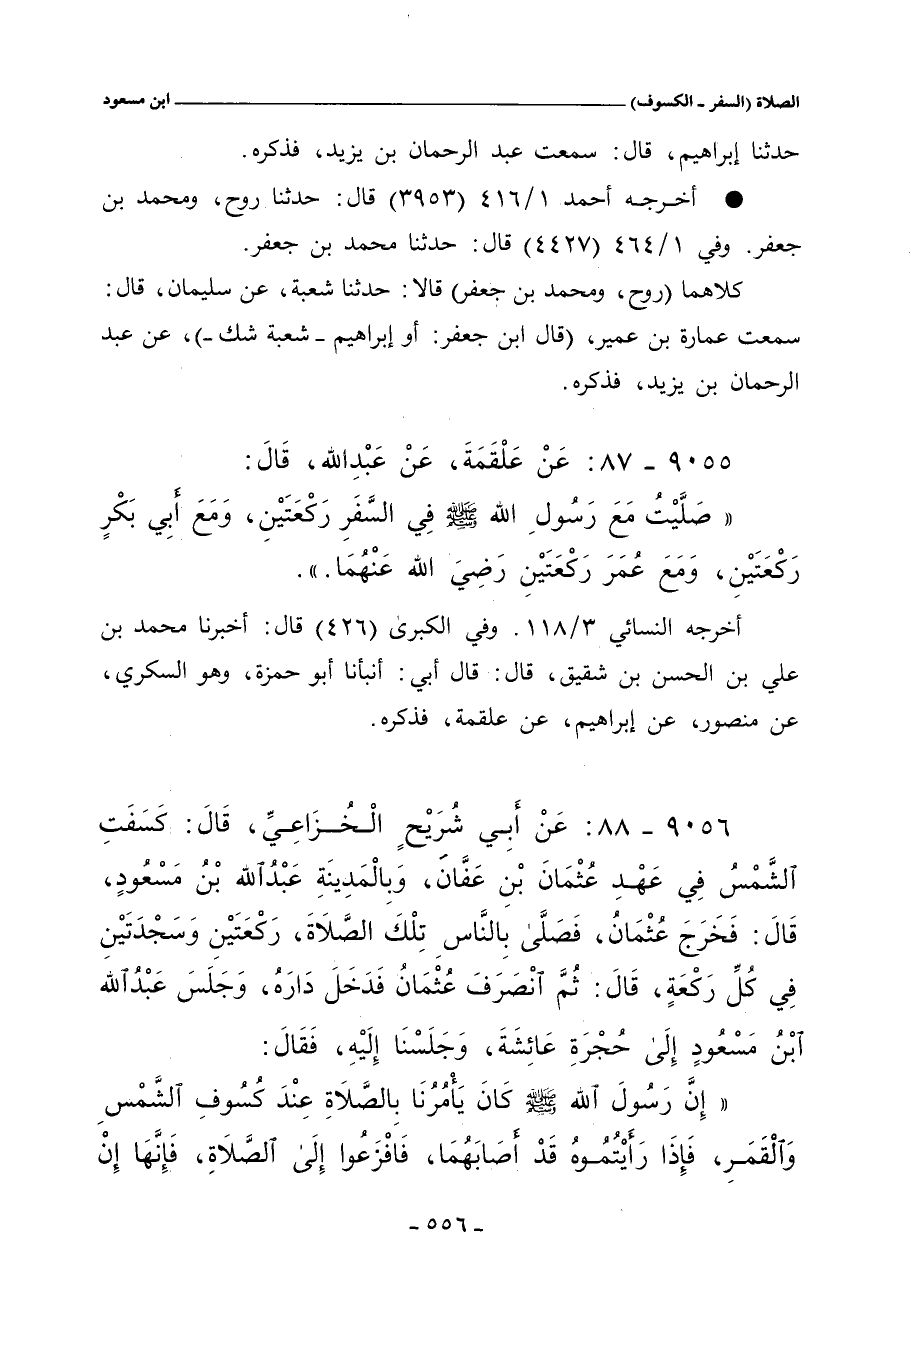 الصلاة (السفر - الكسوف) ــــــــــــــــــــ ابن مسعود
حدثنا إبراهيم، قال: سمعت عبد الرحمان بن يزيد، فذكره.
● أخرجه أحمد ٤١٦/١ (٣٩٥٣) قال: حدثنا روح، ومحمد بن
جعفر. وفي ٤٦٤/١ (٤٤٢٧) قال: حدثنا محمد بن جعفر.
كلاهما (روح، ومحمد بن جعفر) قالا: حدثنا شعبة، عن سليمان، قال:
سمعت عمارة بن عمير، (قال ابن جعفر: أو إبراهيم - شعبة شك -)، عن عبد
الرحمان بن يزيد، فذكره.
٩٠٥٥ - ٨٧: عَنْ عَلْقَمَةَ، عَنْ عَبْدِالله، قَالَ:
« صَلَّيْتُ مَعَ رَسُولِ الله ﷺ فِي السَّفَرِ رَكْعَتَيْنِ، وَمَعَ أَبِي بَكْرٍ
رَكْعَتَيْنِ، وَمَعَ عُمَرَ رَكْعَتَيْنِ رَضِيَ الله عَنْهُمَا.».
أخرجه النسائي ١١٨/٣. وفي الكبرىٰ (٤٢٦) قال: أخبرنا محمد بن
علي بن الحسن بن شقيق، قال: قال أبي: أنبأنا أبو حمزة، وهو السكري،
عن منصور، عن إبراهيم، عن علقمة، فذكره.
٩٠٥٦ - ٨٨: عَنْ أَبِي شُرَيْحٍ الْخُزَاعِيِّ، قَالَ: كَسَفَتِ
ٱلشَّمْسُ فِي عَهْدِ عُثْمَانَ بْنِ عَفَّانَ، وَبِالْمَدِينَةِ عَبْدُٱلله بْنُ مَسْعُودٍ،
قَالَ: فَخَرَجَ عُثْمَانُ، فَصَلَّىٰ بِالنَّاسِ تِلْكَ الصَّلَاةَ، رَكْعَتَيْنِ وَسَجْدَتَيْنِ
فِي كُلِّ رَكْعَةٍ، قَالَ: ثُمَّ ٱنْصَرَفَ عُثْمَانُ فَدَخَلَ دَارَهُ، وَجَلَسَ عَبْدُٱلله
ٱبْنُ مَسْعُودٍ إِلَىٰ حُجْرَةِ عَائِشَةَ، وَجَلَسْنَا إِلَيْهِ، فَقَالَ:
« إِنَّ رَسُولَ ٱلله ﷺ كَانَ يَأْمُرُنَا بِالصَّلَاةِ عِنْدَ كُسُوفِ ٱلشَّمْسِ
وَٱلْقَمَرِ، فَإِذَا رَأَيْتُمُوهُ قَدْ أَصَابَهُمَا، فَافْزَعُوا إِلَىٰ ٱلصَّلَاةِ، فَإِنَّهَا إِنْ
- ٥٥٦ -